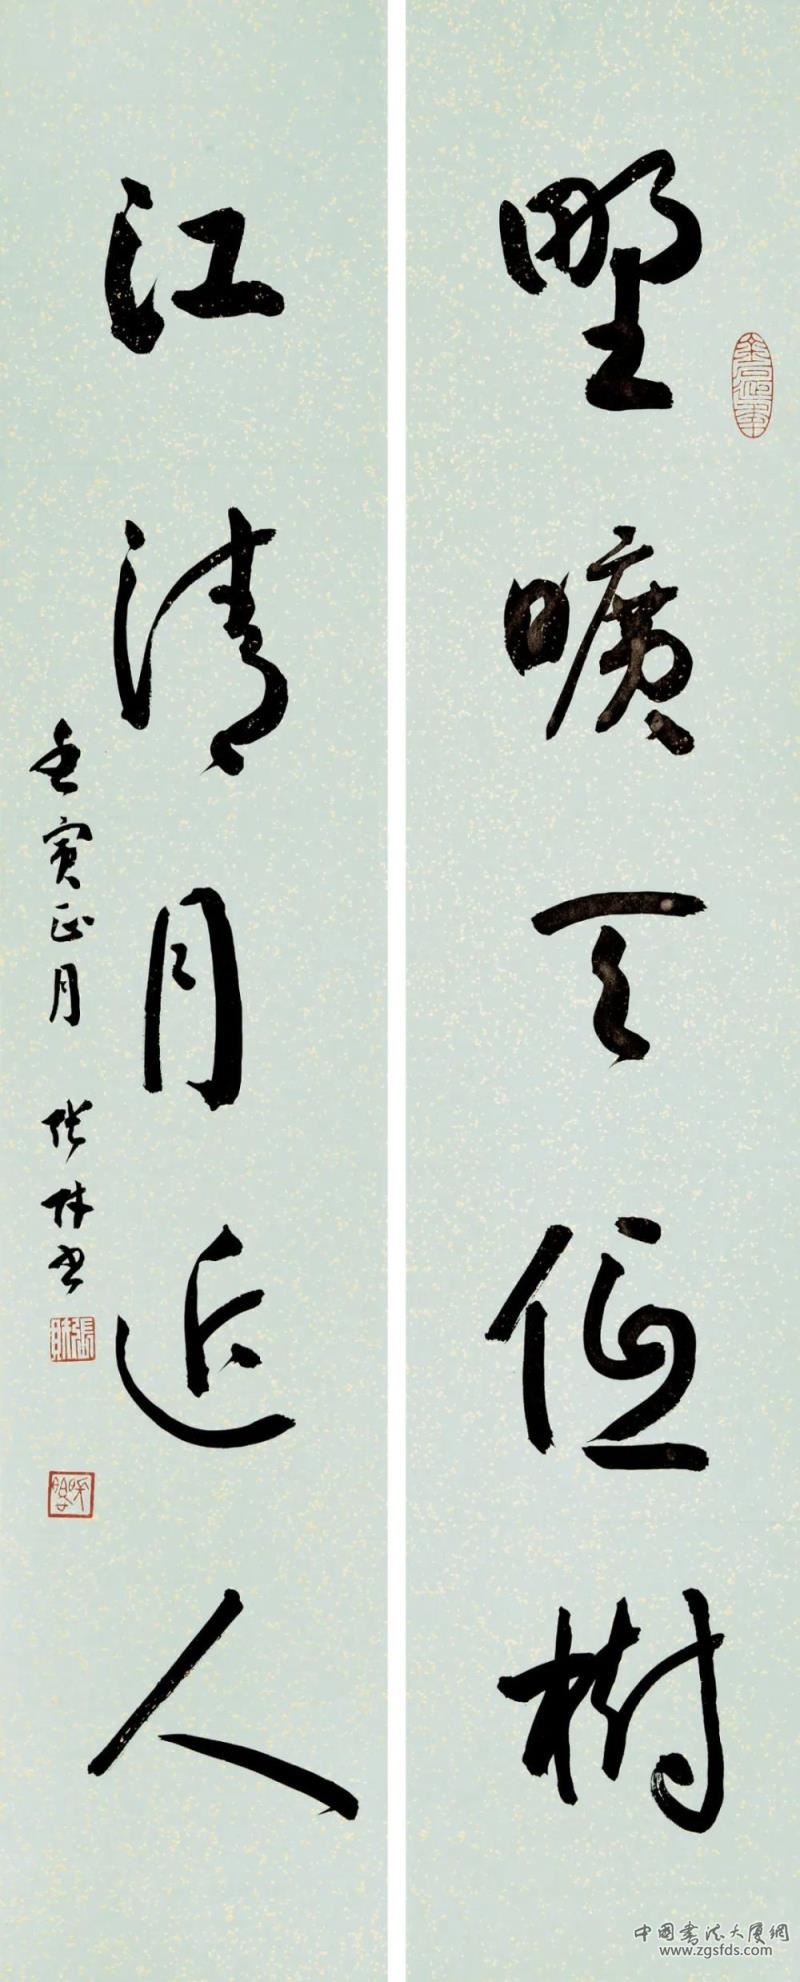 野曠天低樹
金石延年
江清月近人
壬寅正月
中國書法大厦網
www.zgsfds.com